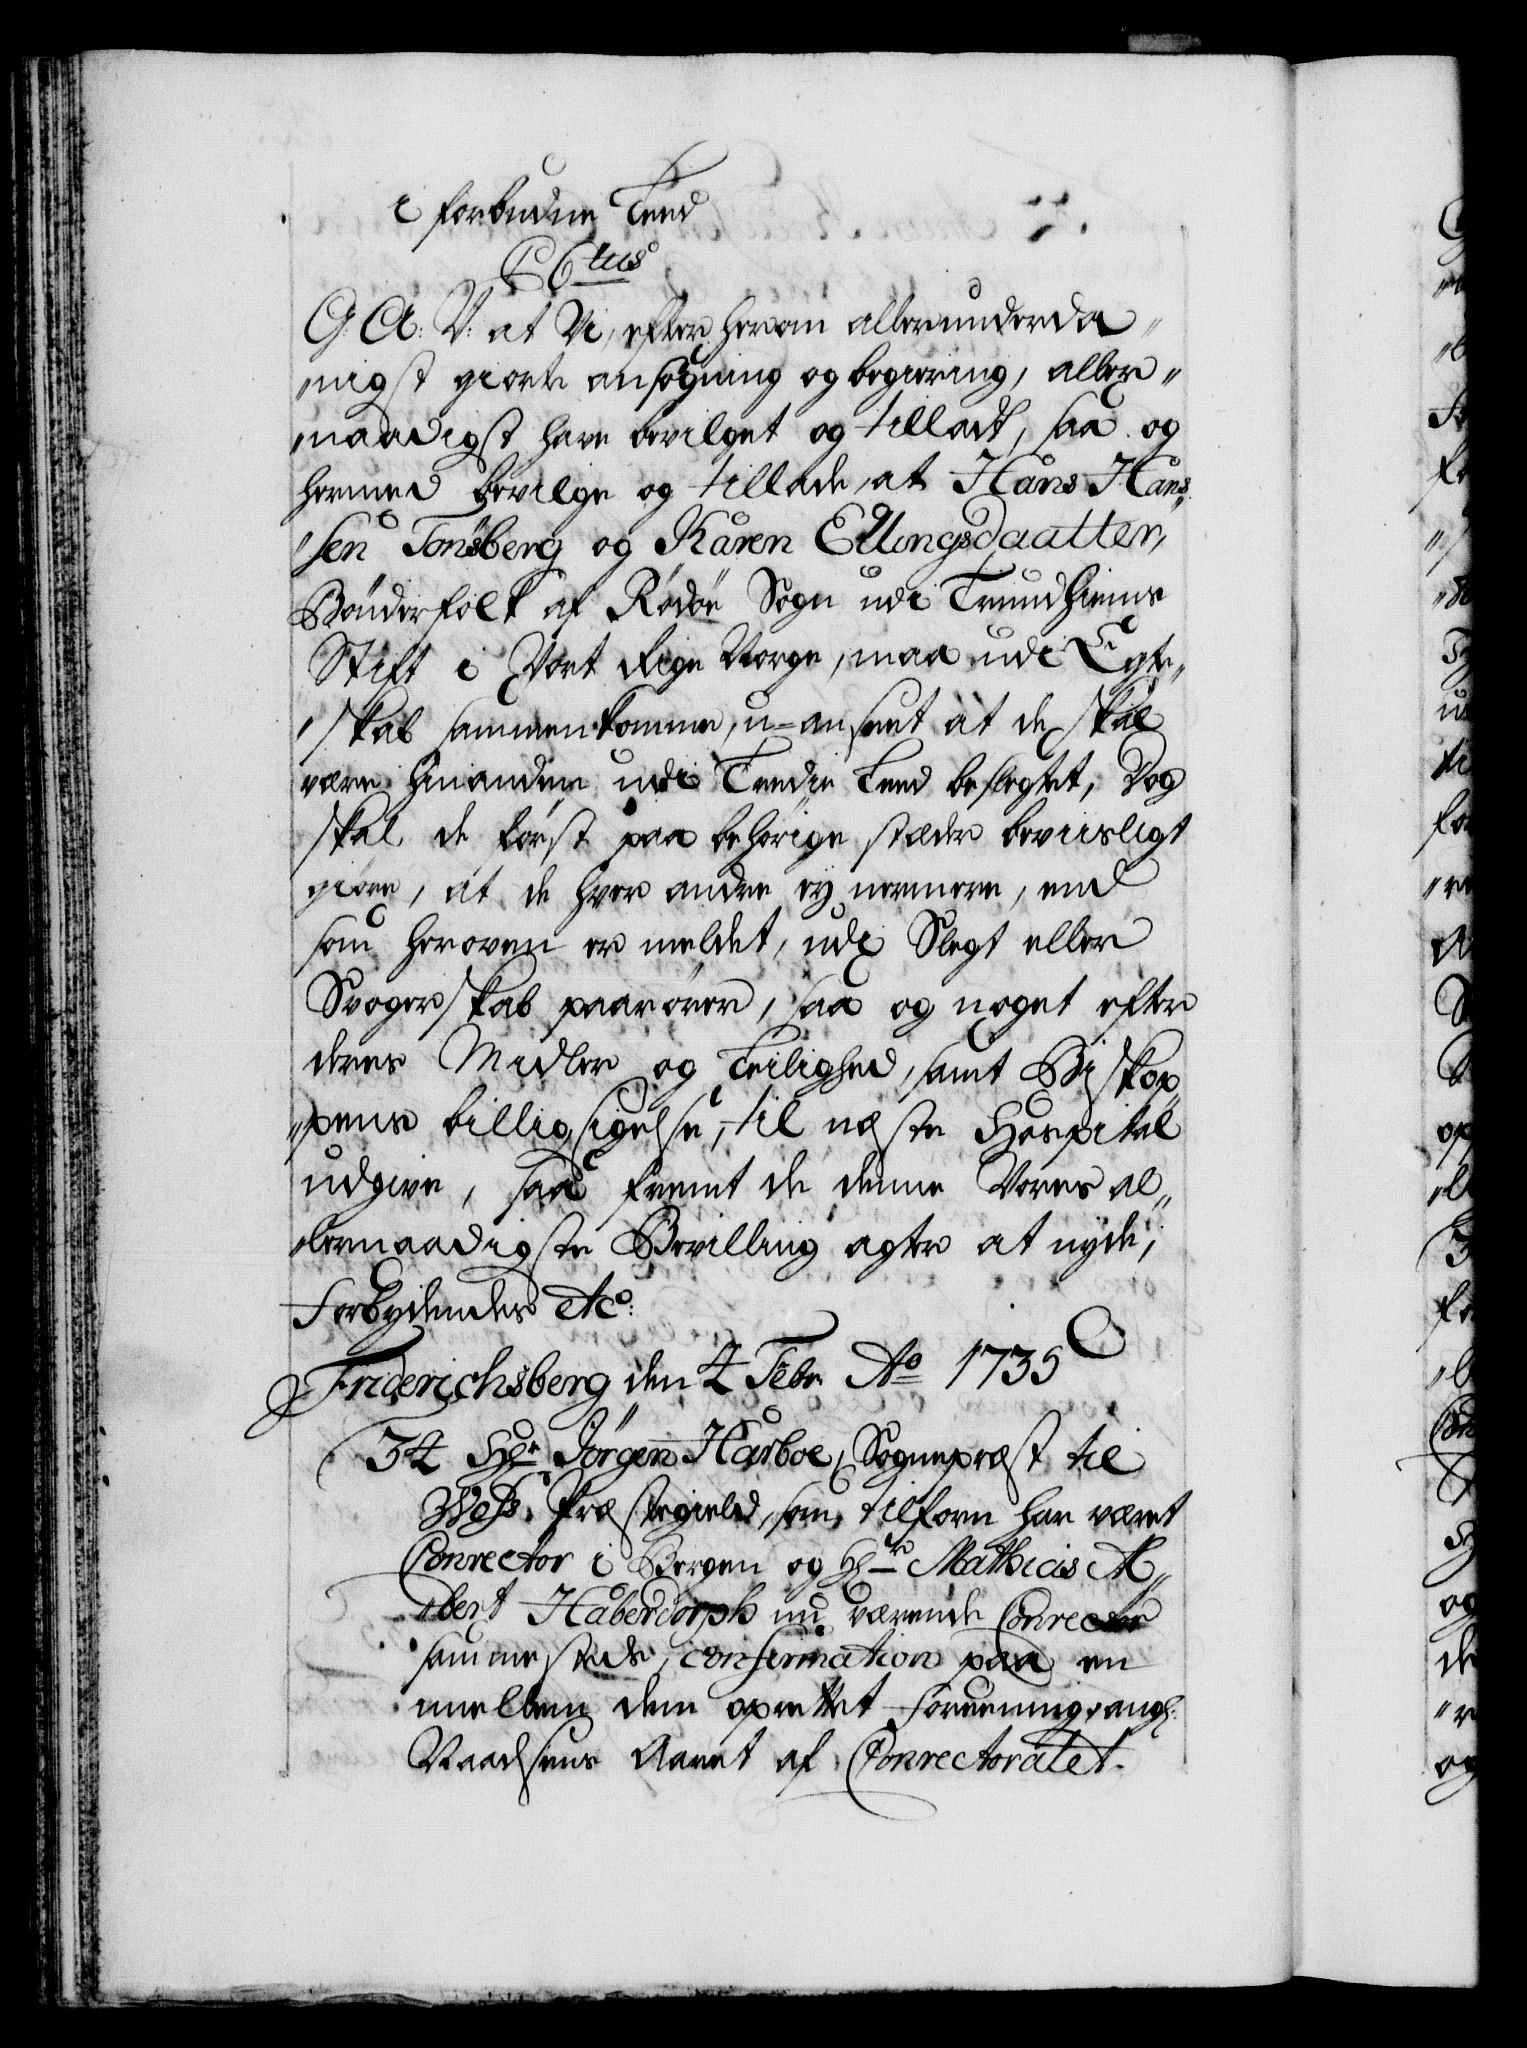 i forbudne Leed
C 6tus
G: A: V: at Vi, efter herom allerunderda„
„nigst giorte ansøgning og begiering, aller„
„naadigst have bevilget og tilladt, saa og
hermed bevilge og tillade, at Hans Han„
„sen Tønsberg og Karen Ellingsdaatter,
Bønderfolk af Rødøe Sogn udi Trundhiems
Stift i Vort Rige Norge, maa udi Egte„
„skab sammenkomme, u-anseet at de skal
være hinanden udi Tredie Leed beslegtet, Dog
skal de først paa behørige stæder beviisligt
giøre, at de hver andre ey nermere, end
som heroven er meldet, udi Slegt eller
Svogerskab paarører, saa og noget efter
deres Midler og Leilighed, samt Biskop„
„pens billig sigelse, til næste Hospital
udgive, saa fremt de denne Vores al„
„lernaadigste Bevilling agter at nyde,
Forbydendes etc:
Friderichsberg den 4 Febr: Ao 1735
34 Hr Jørgen Harboe, Sognepræst til
Woss Præstegield, som tilforn har været
Conrector i Bergen og Hr Mathias Al„
„bert Haberdorph nu værende Conrector
sammesteds, confirmation paa en
mellem dem oprettet Foreening, ang:
Naadsens Aaret af Conrectoratet.